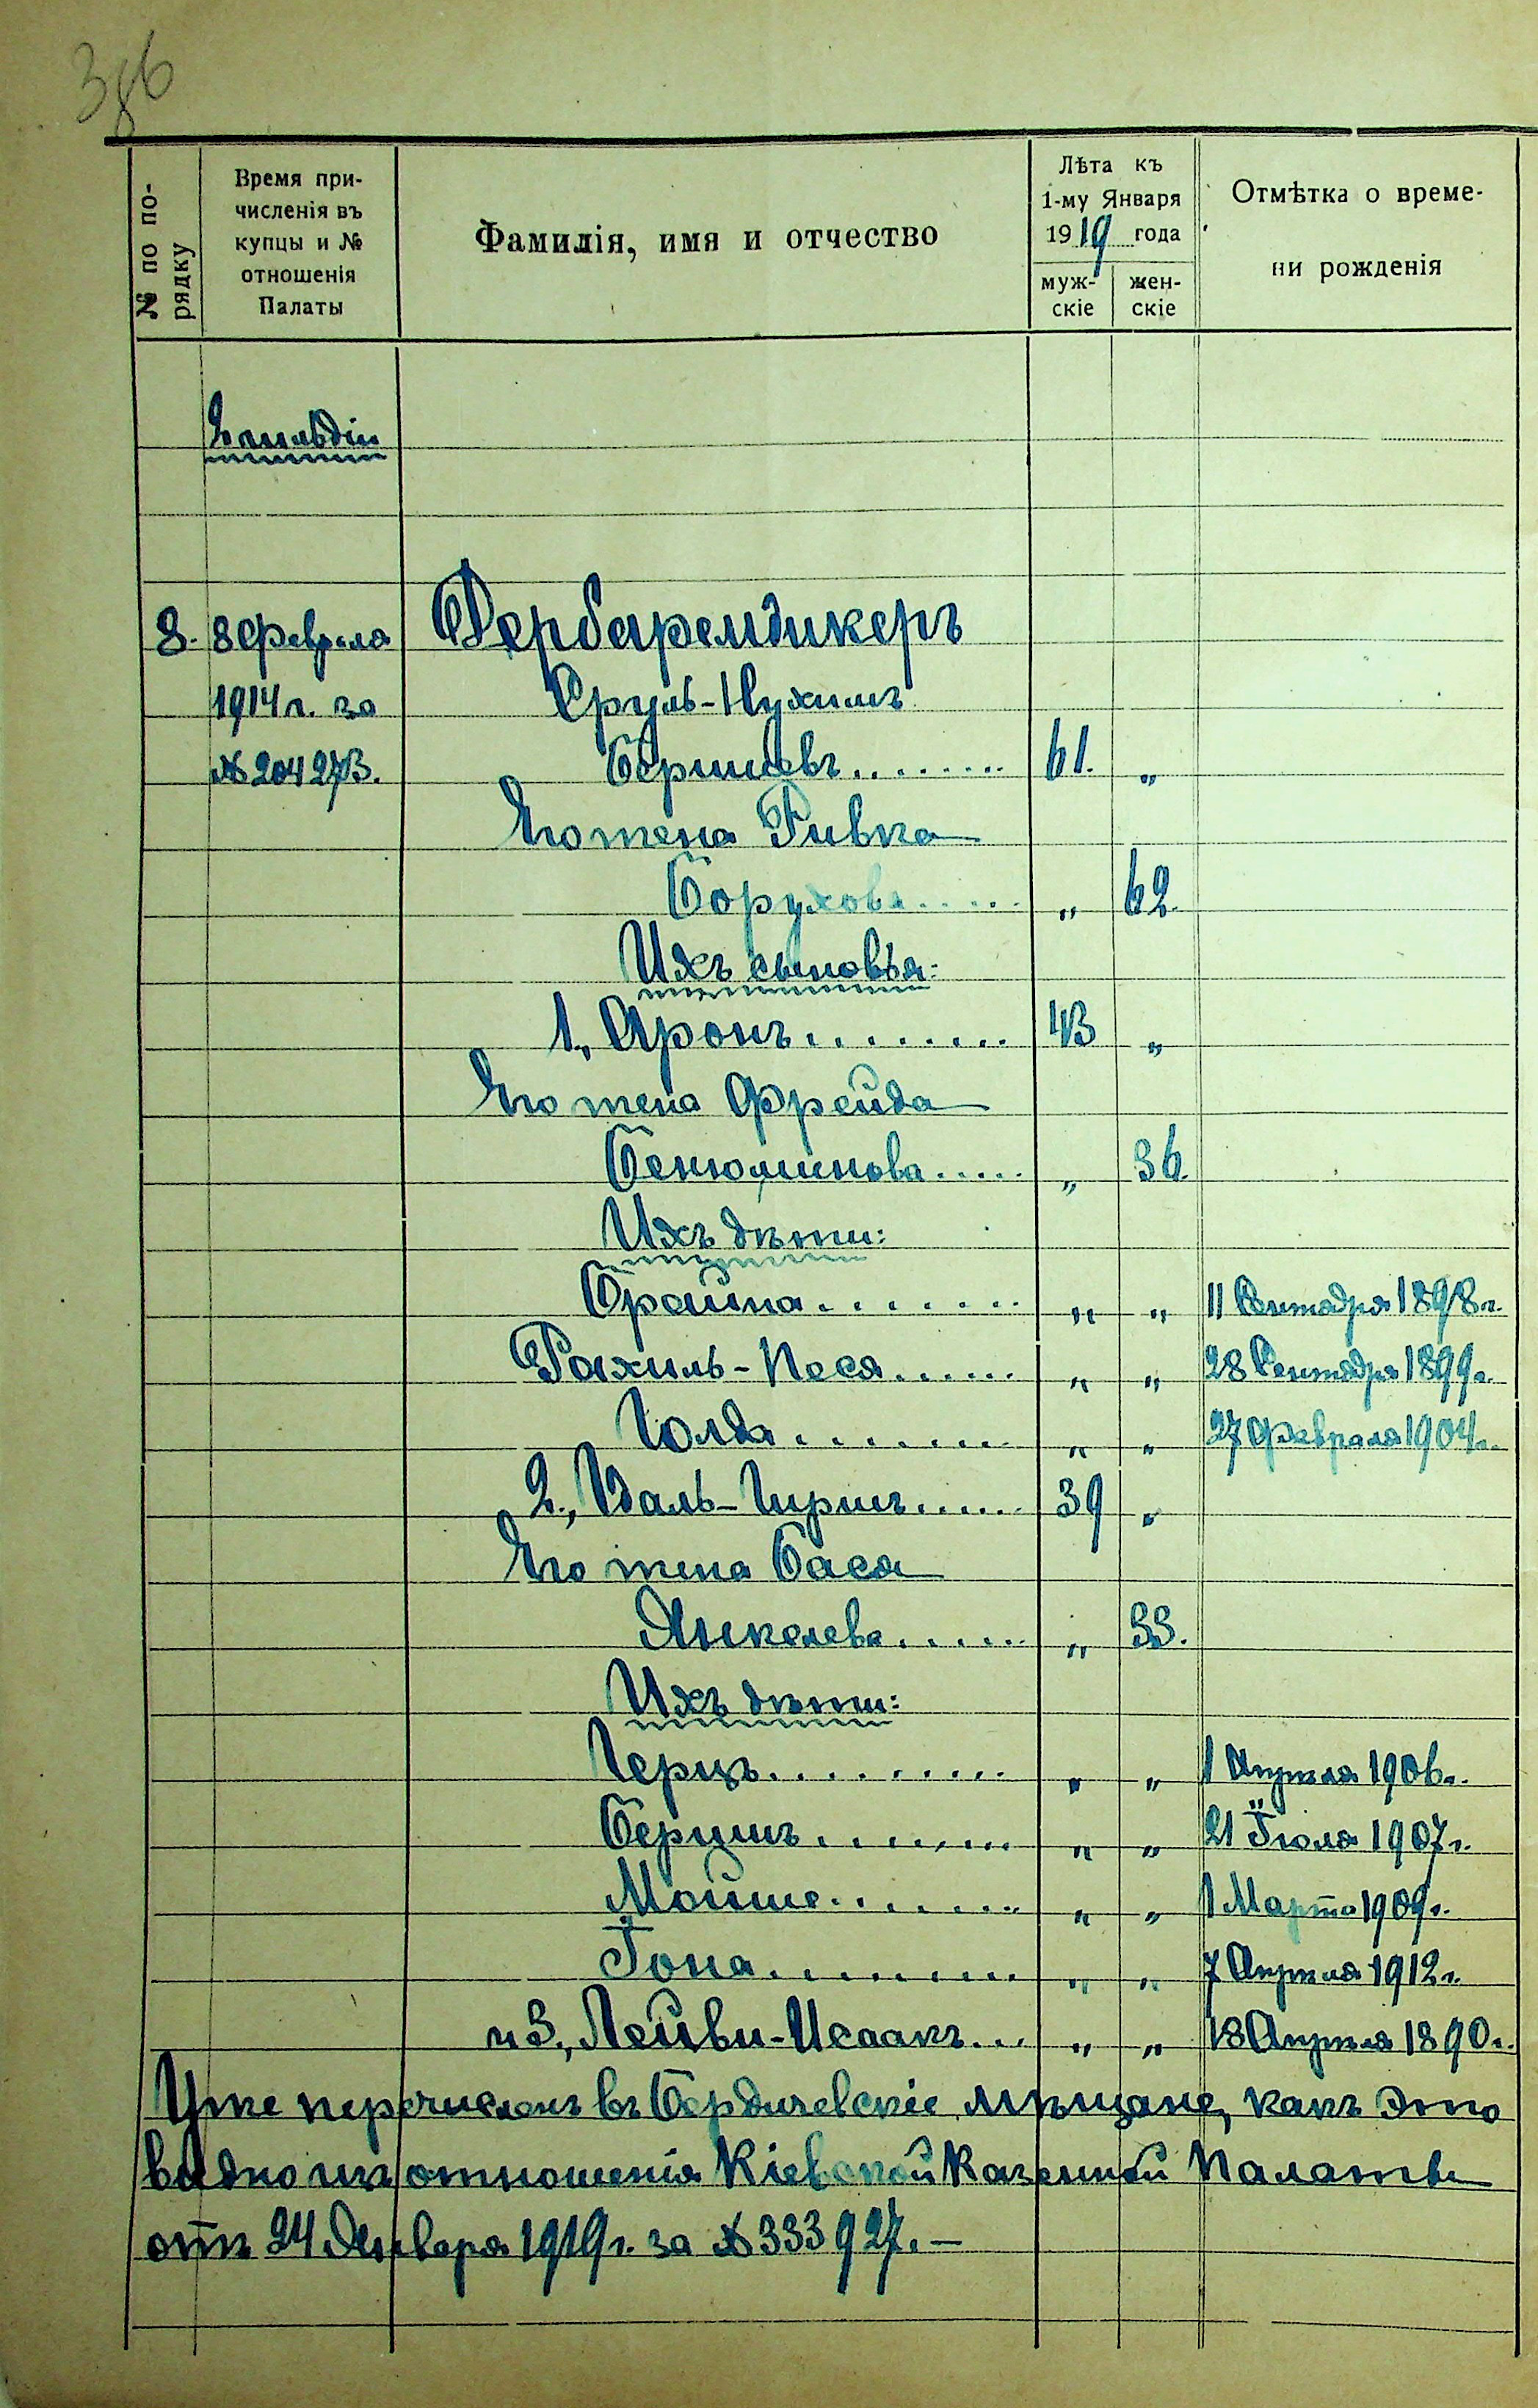 386
№ по по-
рядку
Время при-
численія въ
купцы и №
отношенія
Палаты
Фамилія, имя и отчество
Лѣта къ
1-му Января
1919 года
муж-
скіе
жен-
скіе
Отмѣтка о време-
ни рожденія
2 гильдіи
8. 8 Февраля Фербаремдикеръ
1914 г. за Сруль-Нухимъ
№ 20427/3. Бершковъ......... 61. „
Его жена Ривка
Борухова...... „ 62.
Ихъ сыновья:
1., Аронъ......... 43 „
Его жена Фрейда
Бенюминова..... „ 36.
Ихъ дѣти:
Брайна........ „ „ 11 Сентября 1898 г.
Рахиль-Песя....... „ „ 28 Сентября 1899 г.
Голда......... „ „ 27 Февраля 1904 г.
2., Идаль-Гершъ...... 39 „
Его жена Бася
Янкелева....... „ 33.
Ихъ дѣти:
Герцъ.......... „ „ 1 Апрѣля 1906 г.
Бершъ......... „ „ 21 Іюля 1907 г.
Мойше......... „ „ 1 Марта 1909 г.
Іона.......... „ „ 7 Апрѣля 1912 г.
и 3., Лейви-Исаакъ... „ „ 18 Апрѣля 1890 г.
Уже перечисленъ въ Бердичевскіе мѣщане, какъ это
видно изъ отношенія Кіевской Казенной Палаты
отъ 24 Января 1919 г. за № 333927.—